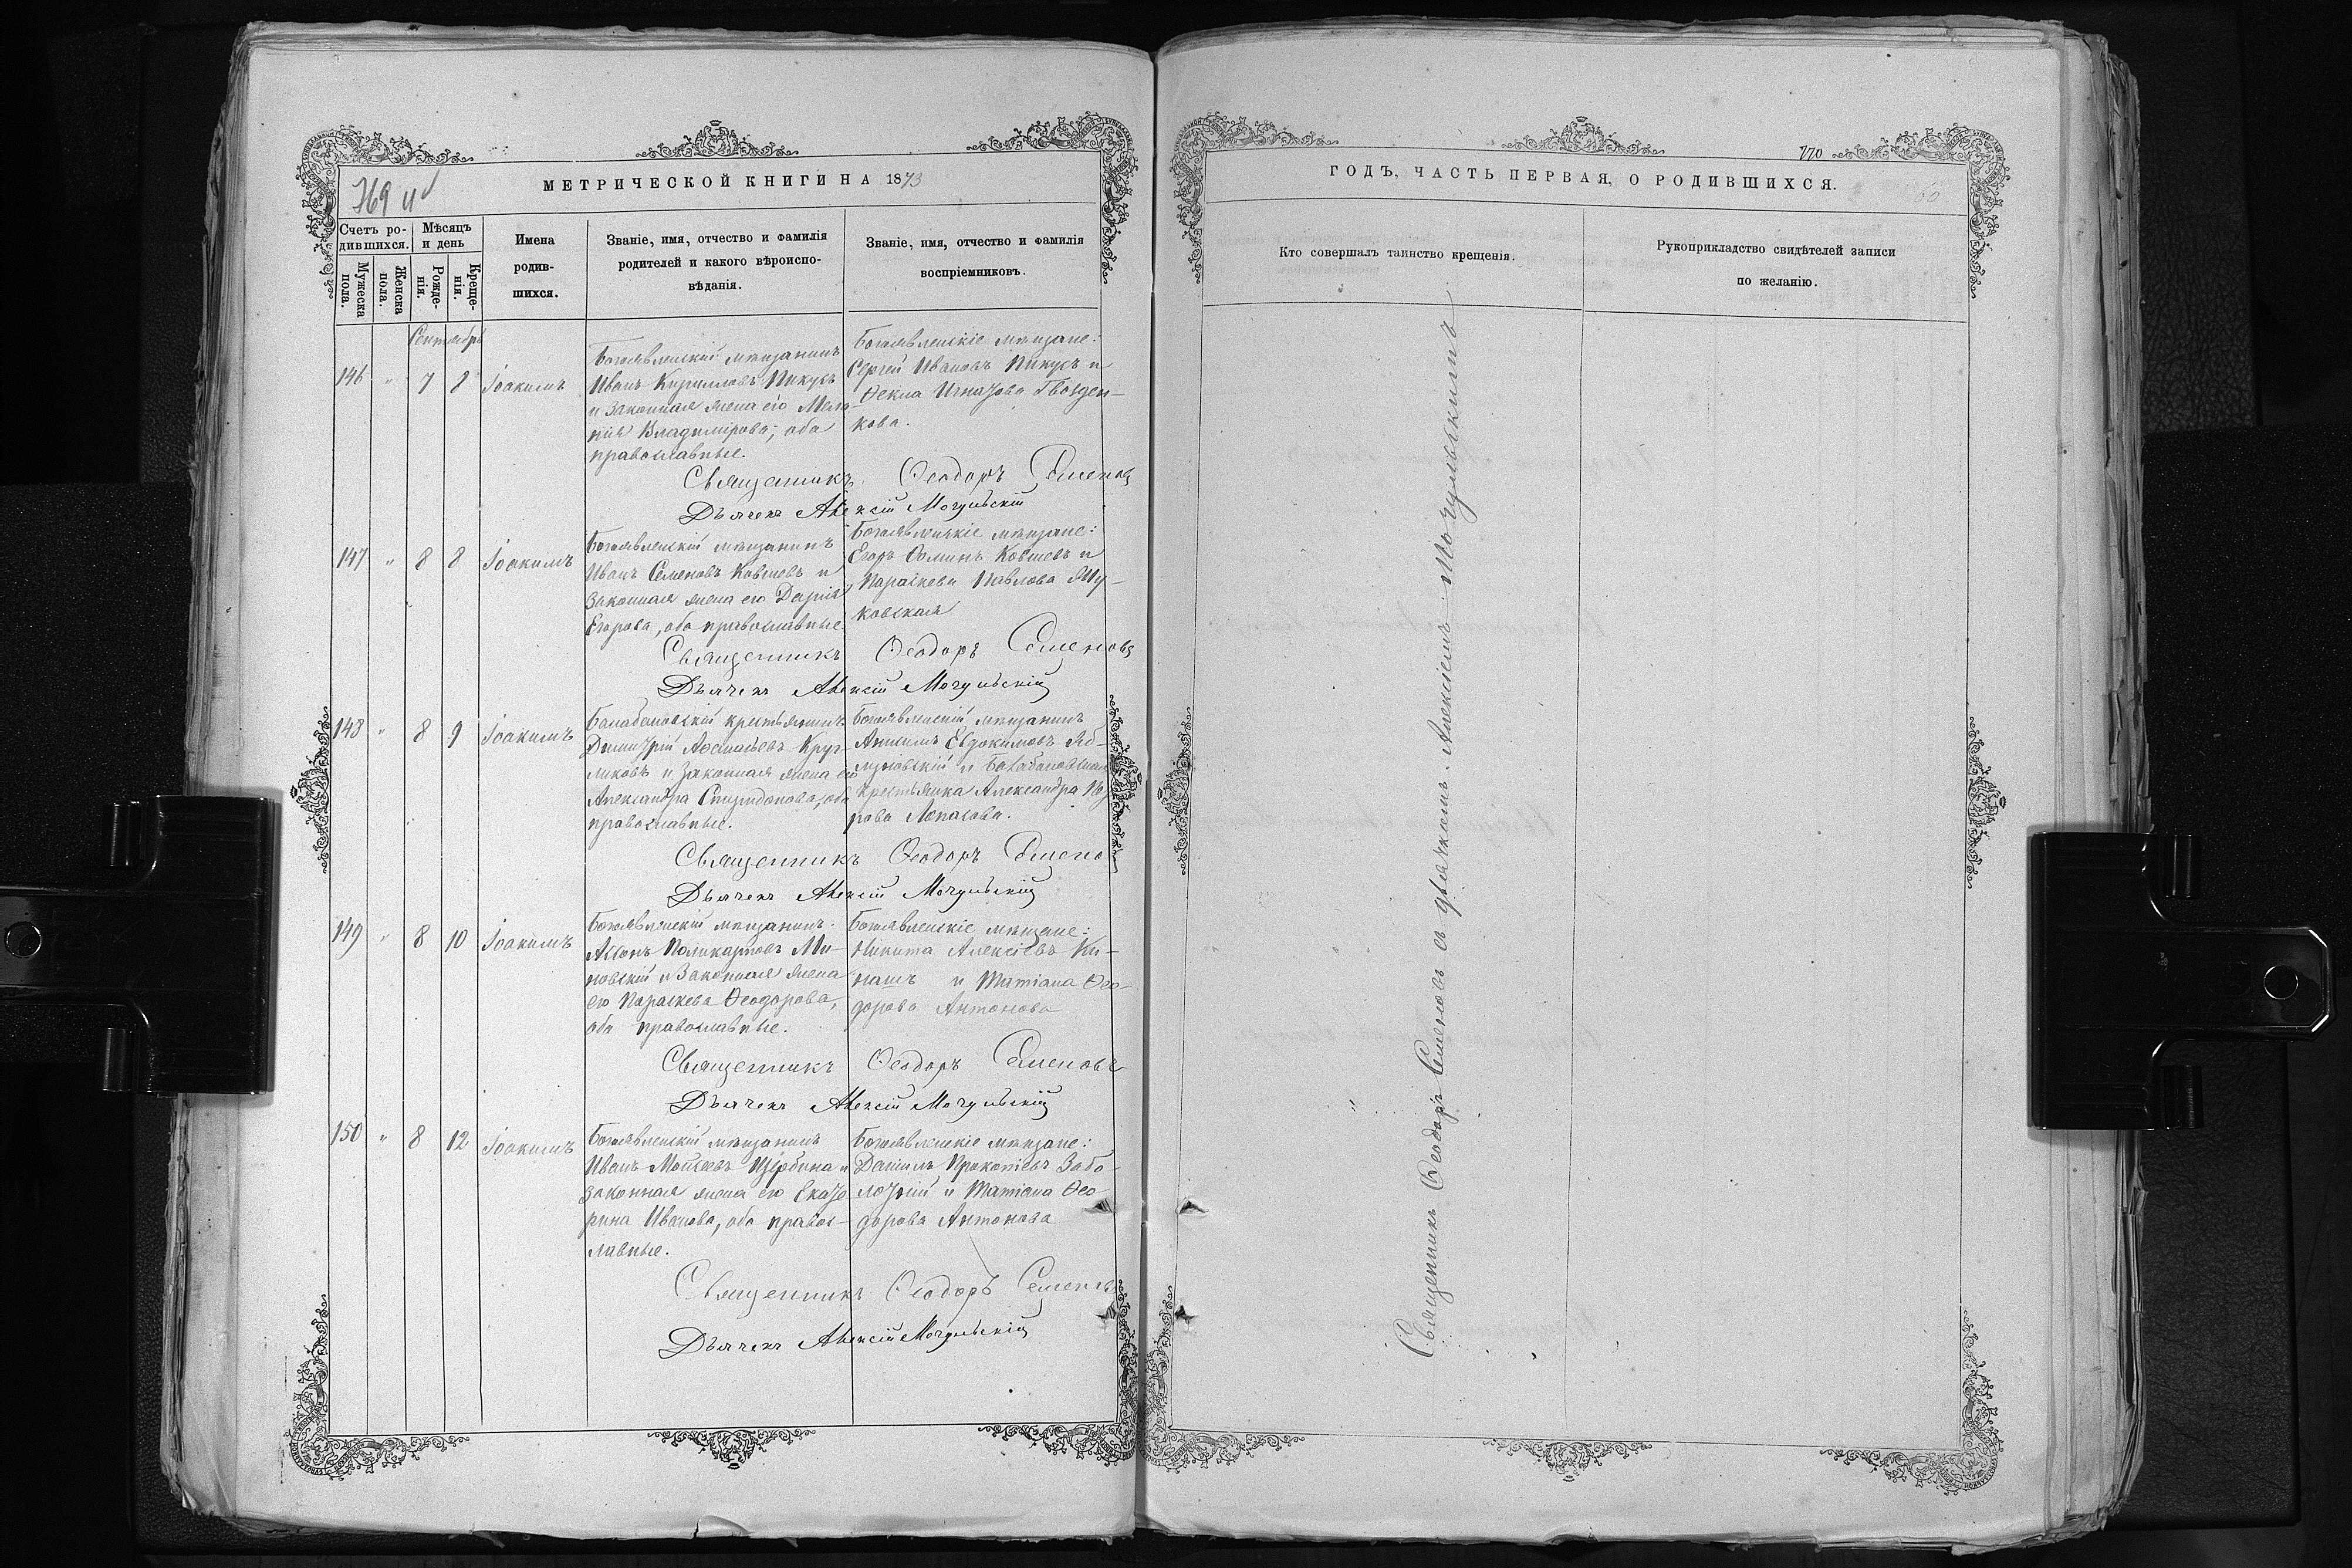 МЕТРИЧЕСКОЙ КНИГИ НА 1873
Счетъ ро-
дившихся.
Мѣсяцъ
и день
Мужеска
пола.
Женска
пола.
Рожде-
нія.
Креще-
нія.
Имена
родив-
шихся.
Званіе, имя, отчество и фамилія
родителей и какого вѣроиспо-
вѣданія.
Званіе, имя, отчество и фамилія
воспріемниковъ.
Сентябрь
146 " 7 8 Іоакимъ
Богоявленскій мѣщанинъ
Иванъ Кирилловъ Пикусъ
и законная жена его Мела-
нія Владимірова, оба
православные.
Богоявленскіе мѣщане:
Сергѣй Ивановъ Пикусъ и
Ѳекла Игнатова Гвозден-
кова.
Священникъ Ѳеодоръ Семеновъ
Дьячекъ Алексій Мочульскій
147 " 8 8 Іоакимъ
Богоявленскій мѣщанинъ
Иванъ Семеновъ Ковшевъ и
законная жена его Дарія
Егорова, оба православные.
Богоявленскіе мѣщане:
Егоръ Ѳоминъ Ковшевъ и
Параскева Павлова
ковская
Священникъ Ѳеодоръ Семеновъ
Дьячекъ Алексій Мочульскій
148 " 8 9 Іоакимъ
Балабановскій крестьянинъ
Димитрій Аѳанасьевъ Круг-
ликовъ и законная жена его
Александра Спиридонова, оба
православные.
Богоявленскій мѣщанинъ
Евдокимовъ Яб-
луновскій и Балабановская
крестьянка Александра
рова
Священникъ Ѳеодоръ Семено
Дьячекъ Алексій Мочульскій
149 " 8 10 Іоакимъ
Богоявленскій мѣщанинъ
Поликарповъ Ми-
новскій и законная жена
его Параскева Ѳеодорова,
оба православные.
Богоявленскіе мѣщане:
Никита Алексіевъ Ки-
нашъ и Татіана Ѳео-
дорова Антонова
Священникъ Ѳеодоръ Семеновъ
Дьячекъ Алексій Мочульскій
150 " 8 12 Іоакимъ
Богоявленскій мѣщанинъ
Иванъ Моѵсеевъ Щербина и
законная жена его Екате
рина Иванова, оба правос-
лавные.
Богоявленскіе мѣщане:
Даніилъ Прокопіевъ Забо-
лотній и Татіана Ѳео-
дорова Антонова
Священникъ Ѳеодоръ Семеновъ
Дьячекъ Алексій Мочульскій
770
ГОДЪ, ЧАСТЬ ПЕРВАЯ, О РОДИВШИХСЯ.
Кто совершалъ таинство крещенія.
Рукоприкладство свидѣтелей записи
по желанію.
Священникъ Ѳеодоръ Семеновъ съ дьячкомъ Алексіемъ Мочульскимъ